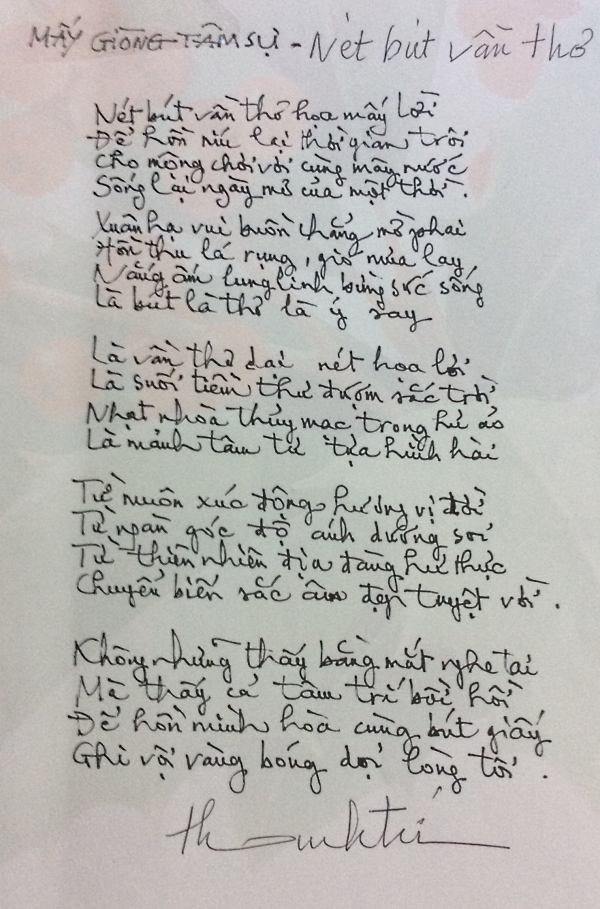 MẤY GIÒNG TÂM SỰ - Nét bút vần thơ
Nét bút vần thơ hoa mấy lời
Để hồn níu lại thời gian trôi
Cho mộng chơi vơi cùng mây nước
Sống lại ngày mơ của một thời.
Xuân hạ vui buồn chẳng mờ phai
Hồn thu lá rụng, gió mùa lay
Nắng ấm lung linh bừng sức sống
Là bút là thơ là ý say
Là vần thơ dại nét hoa lơi
Là suối tiềm thư đượm sắc trời
Nhạt nhòa thủy mạc trong hư ảo
Là mảnh tâm tư tựa hình hài
Từ muôn xúc động hương vị đời
Từ ngàn góc độ ánh dương soi
Từ thiên nhiên địa đàng hư thực
Chuyển biến sắc âm đẹp tuyệt vời.
Không những thấy bằng mắt nghe tai
Mà thấy cả tâm trí bồi hồi
Để hồn mình hòa cùng bút giấy
Ghi vội vàng bóng dọi lòng tôi.